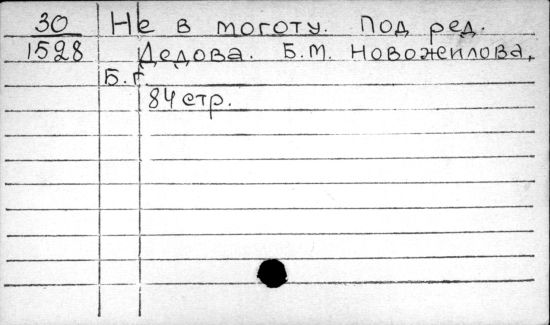 30 Не в моготу. Под ред.
1528 Дедова. Б.М. Новожилова,
Б.г
84 стр.